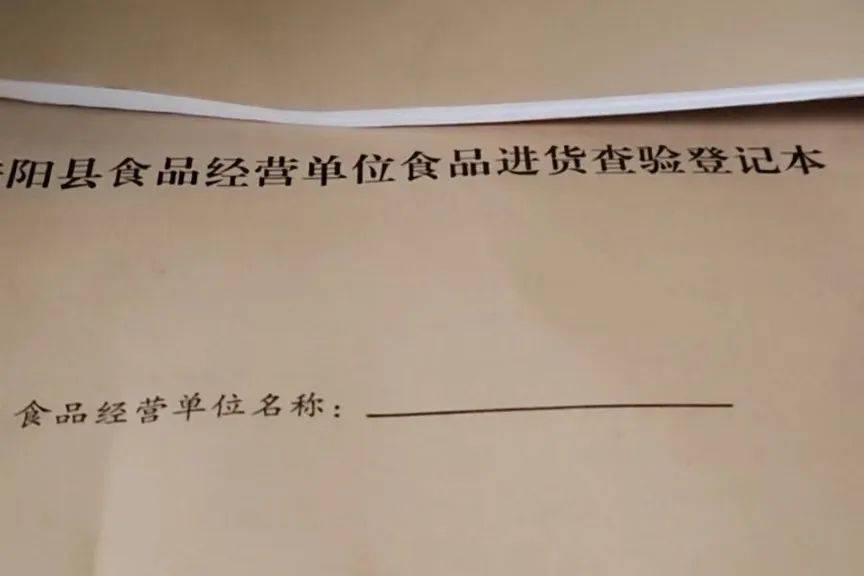 阳县食品经营单位食品进货查验登记本
食品经营单位名称：